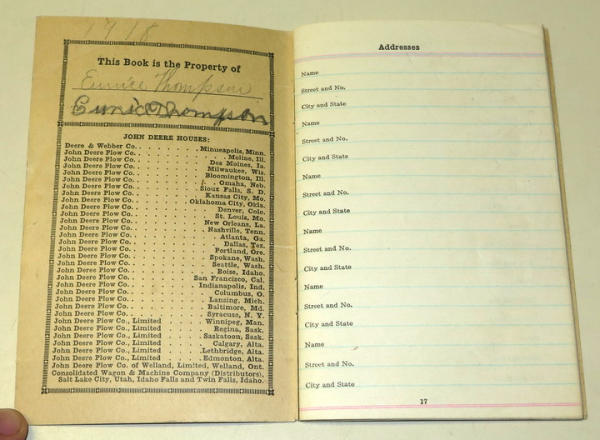 1918
This Book is the Property of
Eunice Thompson
Eunice Thompson
JOHN DEERE HOUSES:
Deere & Webber Co. . . . . . . . Minneapolis, Minn.
John Deere Plow Co. . . . . . . . Moline, Ill.
John Deere Plow Co. . . . . . . . Des Moines, Ia.
John Deere Plow Co. . . . . . . . Milwaukee, Wis.
John Deere Plow Co. . . . . . . . Bloomington, Ill.
John Deere Plow Co. . . . . . . . Omaha, Neb.
John Deere Plow Co. . . . . . . . Sioux Falls, S. D.
John Deere Plow Co. . . . . . . . Kansas City, Mo.
John Deere Plow Co. . . . . . . . Oklahoma City, Okla.
John Deere Plow Co. . . . . . . . Denver, Colo.
John Deere Plow Co. . . . . . . . St. Louis, Mo.
John Deere Plow Co. . . . . . . . New Orleans, La.
John Deere Plow Co. . . . . . . . Nashville, Tenn.
John Deere Plow Co. . . . . . . . Atlanta, Ga.
John Deere Plow Co. . . . . . . . Dallas, Tex.
John Deere Plow Co. . . . . . . . Portland, Ore.
John Deere Plow Co. . . . . . . . Spokane, Wash.
John Deere Plow Co. . . . . . . . Seattle, Wash.
John Deere Plow Co. . . . . . . . Boise, Idaho.
John Deere Plow Co. . . . . . . . San Francisco, Cal.
John Deere Plow Co. . . . . . . . Indianapolis, Ind.
John Deere Plow Co. . . . . . . . Columbus, O.
John Deere Plow Co. . . . . . . . Lansing, Mich.
John Deere Plow Co. . . . . . . . Baltimore, Md.
John Deere Plow Co. . . . . . . . Syracuse, N. Y.
John Deere Plow Co., Limited . . . . . Winnipeg, Man.
John Deere Plow Co., Limited . . . . . Regina, Sask.
John Deere Plow Co., Limited . . . . . Saskatoon, Sask.
John Deere Plow Co., Limited . . . . . Calgary, Alta.
John Deere Plow Co., Limited . . . . . Lethbridge, Alta.
John Deere Plow Co., Limited . . . . . Edmonton, Alta.
John Deere Plow Co. of Welland, Limited, Welland, Ont.
Consolidated Wagon & Machine Company (Distributors),
Salt Lake City, Utah, Idaho Falls and Twin Falls, Idaho.
Addresses
Name
Street and No.
City and State
Name
Street and No.
City and State
Name
Street and No.
City and State
Name
Street and No.
City and State
Name
Street and No.
City and State
Name
Street and No.
City and State
17